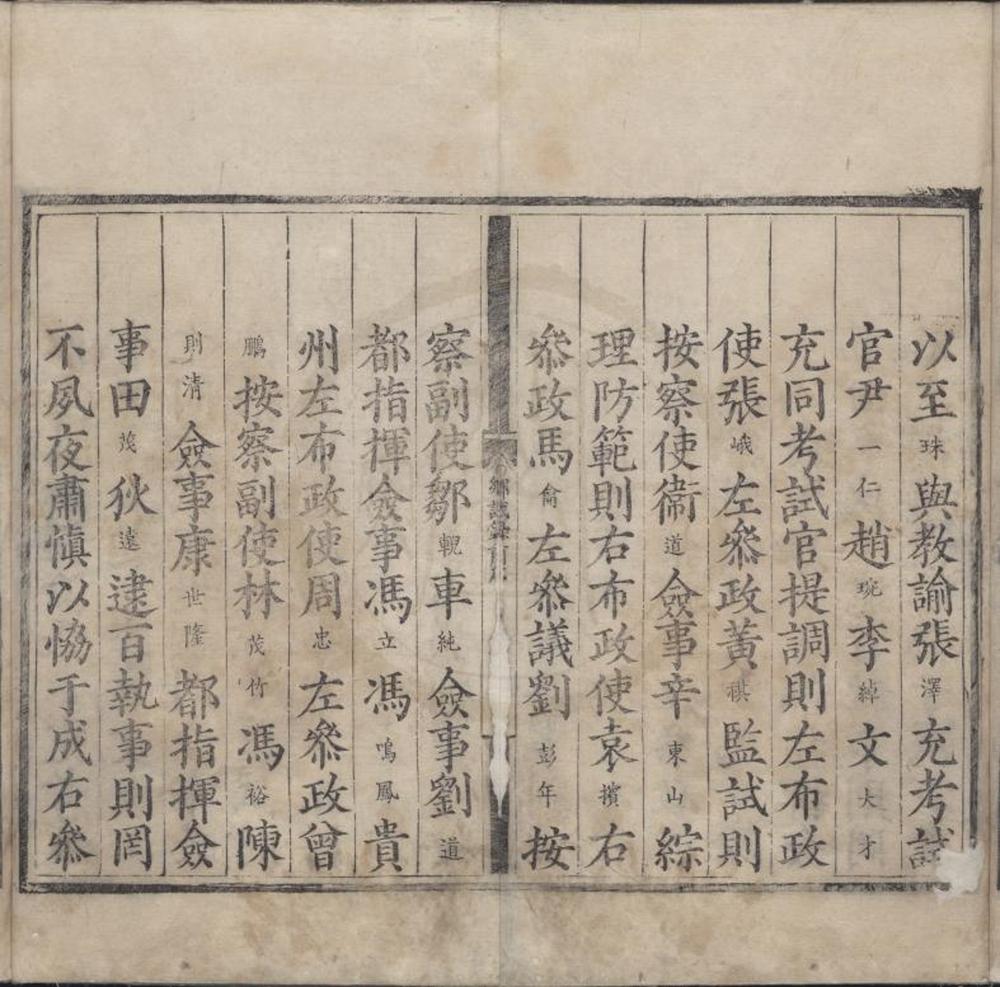 以至珠與教諭張澤充考試
官尹一仁趙琬李綽文大才
充同考試官提調則左布政
使張峨左叅政黃祺監試則
按察使衞道僉事辛東山綜
理防範則右布政使袁擯右
叅政馬侖左叅議劉彭年按
鄉試錄前
察副使鄒輗車純僉事劉道
都指揮僉事馮立馮鳴鳳貴
州左布政使周忠左叅政曾
鵬按察副使林茂竹馮裕陳
則清僉事康世隆都指揮僉
事田茂狄遠逮百執事則罔
不夙夜肅愼以恊于成右叅